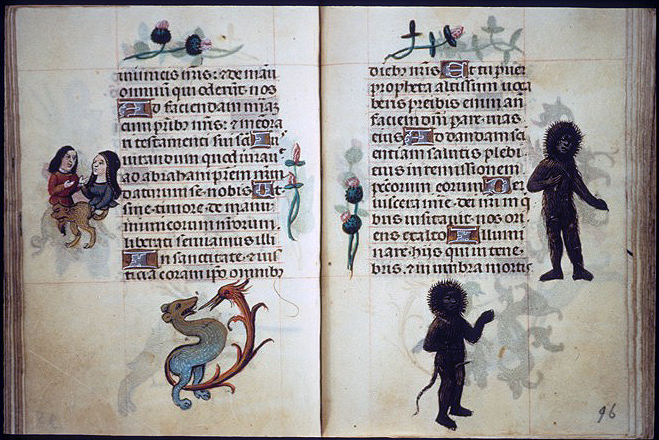 inimicis nris: & de manu
omnium qui oderunt nos
Ad faciendam miam
cum pribus nris: & memora
ri testamenti sui sci Ius
iurandum quod iurauit
ad abraham prem nrm
daturum se nobis Ut
sine timore de manu
inimicorum nrorum
liberati seruiamus illi
In sanctitate & ius
ticia coram ipso omnibus
diebus nris Et tu puer
propheta altissimi uoca
beris preibis enim an
faciem dni parare uias
eius Ad dandam sci
entiam salutis plebi
eius in remissionem
peccorum eorum Per
uiscera mie dei nri in q
bus uisitauit nos ori
ens ex alto Illumi
nare hijs qui in tene
bris & in umbra mortis
96